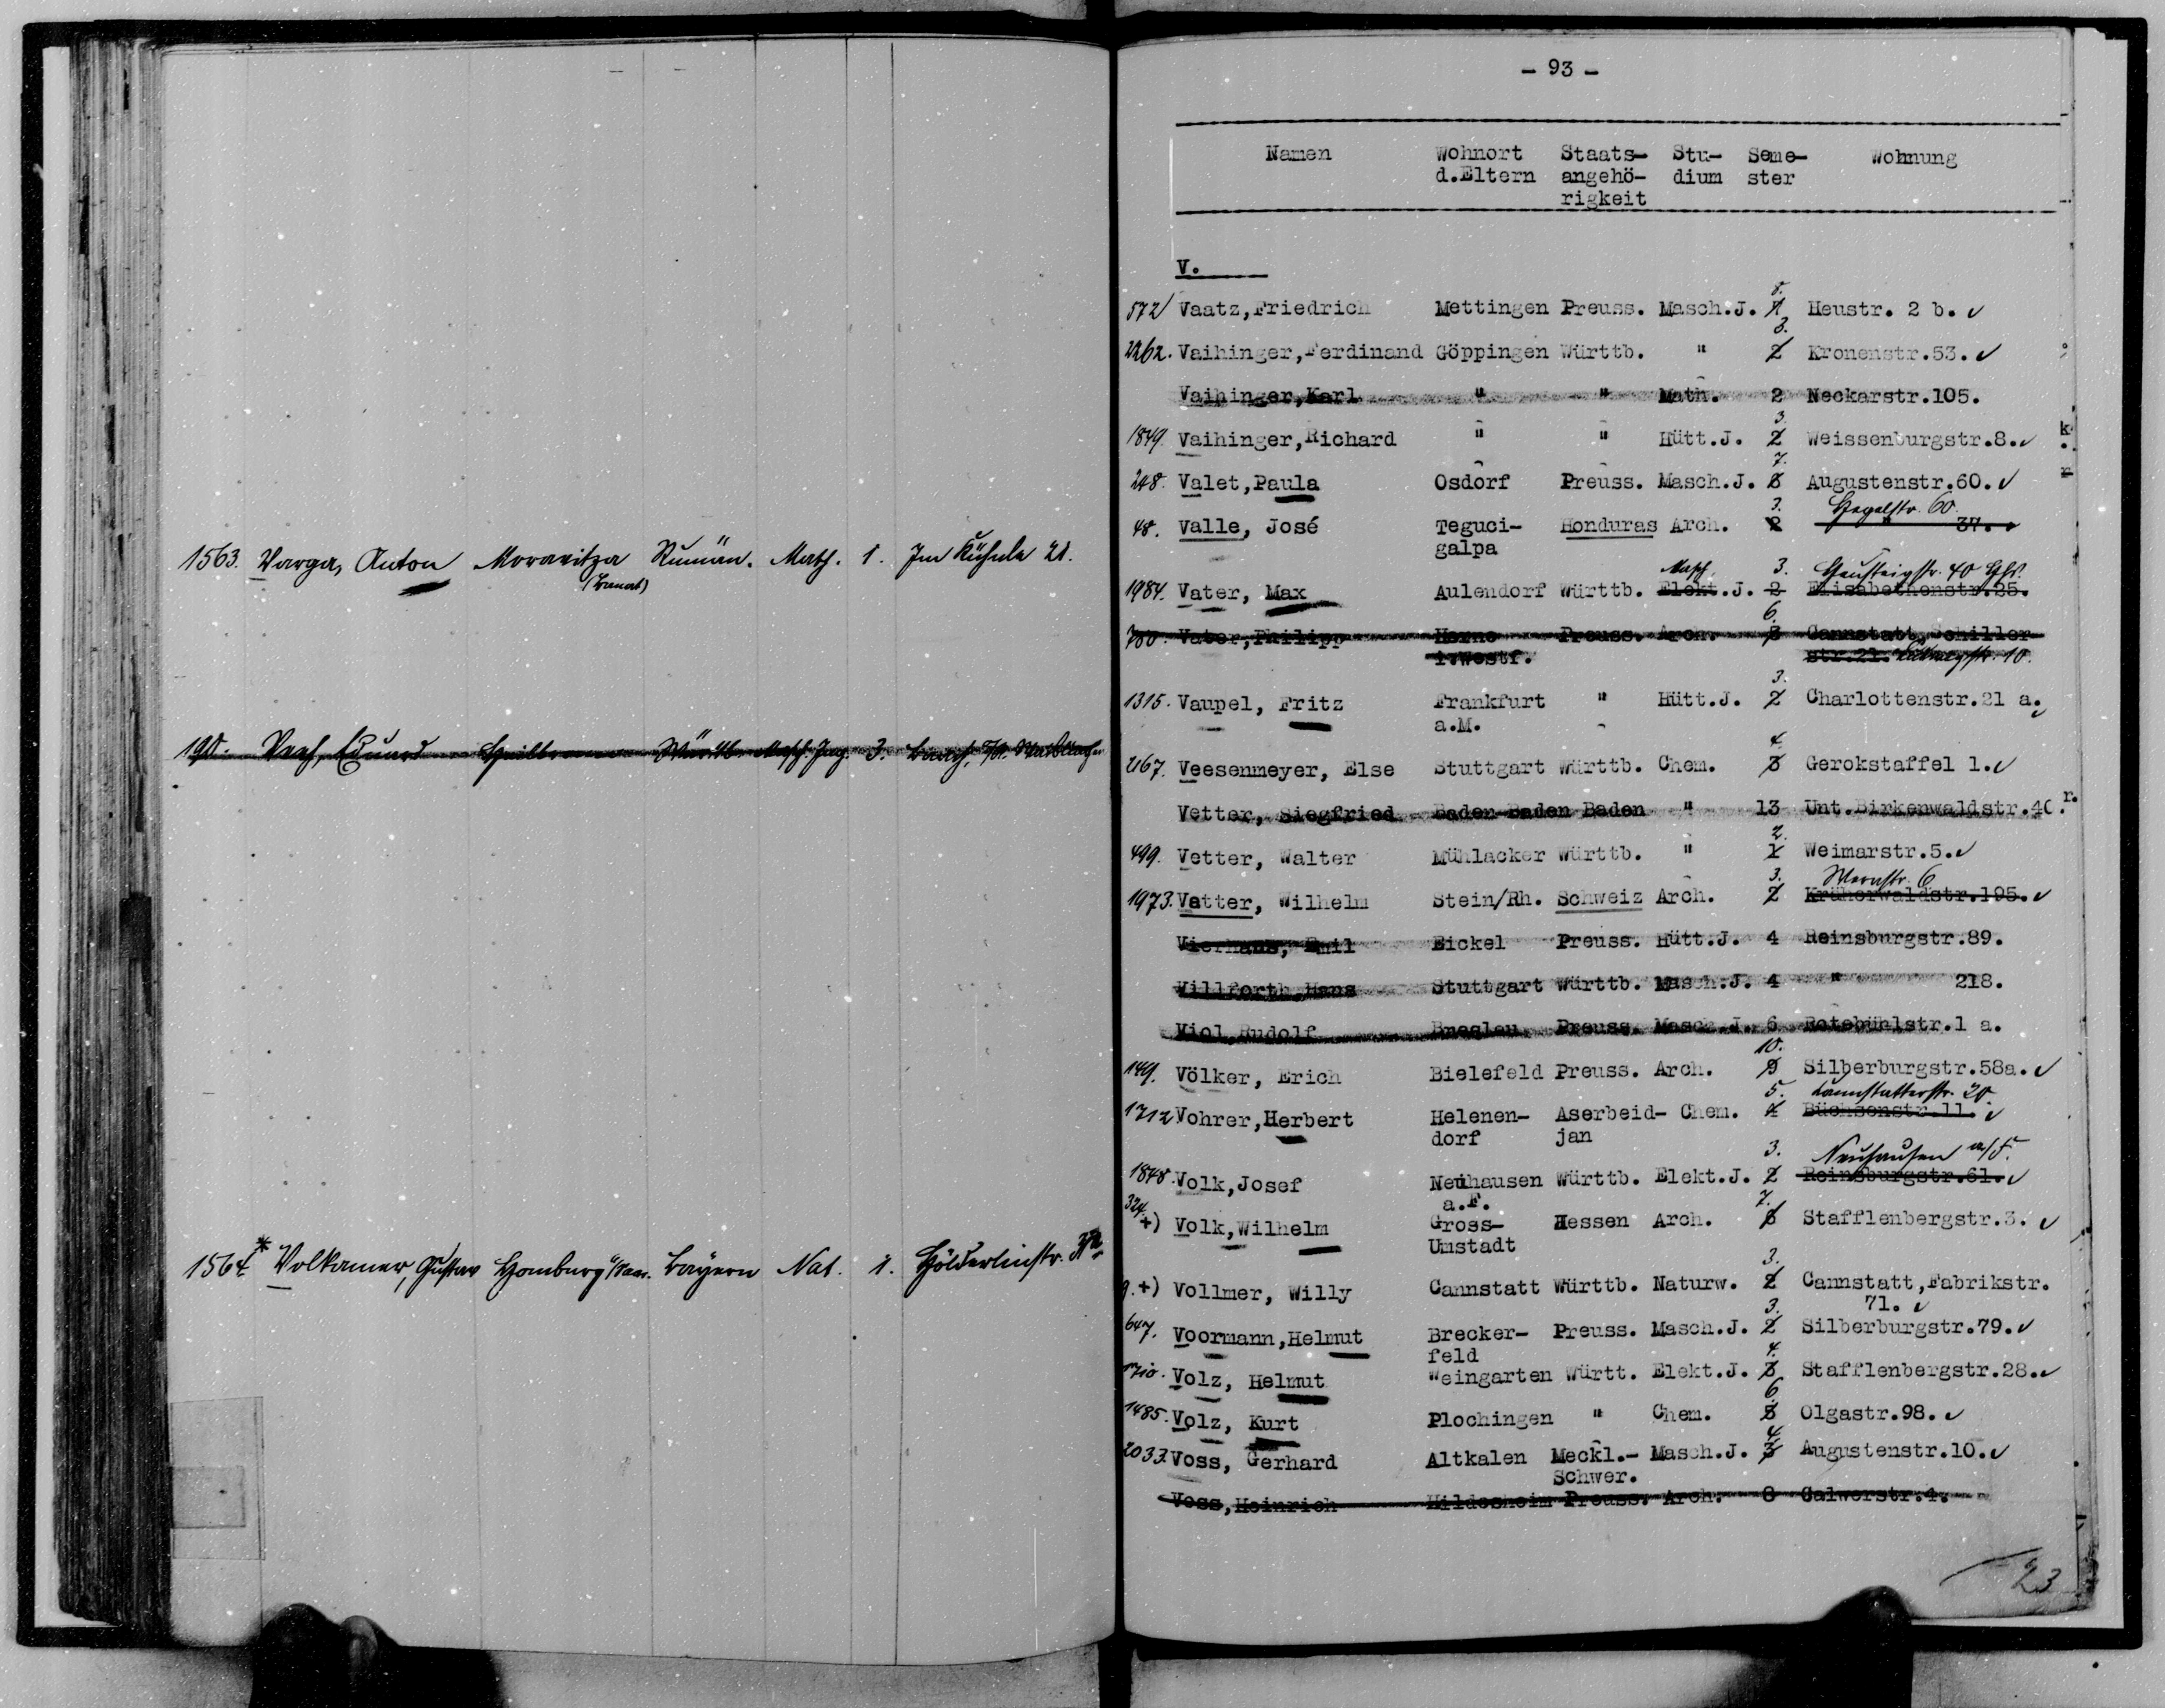 1563. Varga, Anton Moravitza Rumän. Math. 1. Im Kühnle 21.
(Banat)
198. Eduard Württb. Masch. Ing. 3.
1564 * Volkamer, Gustav Homburg Bayern Nat. 1. Hölderlinstr.
- 93 -
Namen Wohnort Staats- Stu- Seme- Wohnung
d.Eltern angehö- dium ster
rigkeit
V.
572 Vaatz,Friedrich Mettingen Preuss. Masch.J. 8. Heustr. 2 b.
2262. Vaihinger,Ferdinand Göppingen Württb. " 2 3. Kronenstr.53.
Vaihinger,Karl " " Math. 2 Neckarstr.105.
1849. Vaihinger,Richard " " Hütt.J. 2 3. Weissenburgstr.8.
248. Valet,Paula Osdorf Preuss. Masch.J. 6 7. Augustenstr.60.
Hegelstr. 60.
48. Valle, José Teguci- Honduras Arch. 2 3. " 37.
galpa
Masch. 3.
1984. Vater, Max Aulendorf Württb. Elekt.J. 2 Elisabethenstr.25.
780. Vater,Philipp Herne Preuss. Arch. 6. Cannstatt,Schiller-
i.Westf. str.21. Ludwigstr. 10.
1315. Vaupel, Fritz Frankfurt " Hütt.J. 2 3. Charlottenstr.21 a.
a.M.
2167. Veesenmeyer, Else Stuttgart Württb. Chem. 3 4. Gerokstaffel 1.
Vetter, Siegfried Baden-Baden Baden " 13 Unt.Birkenwaldstr.40.
499. Vetter, Walter Mühlacker Württb. " 1 2. Weimarstr.5.
Wernstr. 6
1973. Vetter, Wilhelm Stein/Rh. Schweiz Arch. 2 3. Kräherwaldstr.195.
Vierhaus, Emil Eickel Preuss. Hütt.J. 4 Reinsburgstr.89.
Villforth,Hans Stuttgart Württb. Masch.J. 4 " 218.
Viol,Rudolf Breslau Preuss. Masch.J. 6 Rotebühlstr.1 a.
149. Völker, Erich Bielefeld Preuss. Arch. 9 10. Silberburgstr.58a.
Cannstatterstr. 20.
1712 Vohrer,Herbert Helenen- Aserbeid- Chem. 4 5. Büchsenstr.11.
dorf jan
Neuhausen a/F.
1848. Volk,Josef Neuhausen Württb. Elekt.J. 2 3. Reinsburgstr.61.
a.F.
324. +) Volk,Wilhelm Gross- Hessen Arch. 6 7. Stafflenbergstr.3.
Umstadt
9. +) Vollmer, Willy Cannstatt Württb. Naturw. 2 3. Cannstatt,Fabrikstr.
71.
647. Voormann,Helmut Brecker- Preuss. Masch.J. 2 3. Silberburgstr.79.
feld
1710. Volz, Helmut Weingarten Württ. Elekt.J. 3 4. Stafflenbergstr.28.
1485. Volz, Kurt Plochingen " Chem. 5 6. Olgastr.98.
2033. Voss, Gerhard Altkalen Meckl.- Masch.J. 3 4. Augustenstr.10.
Schwer.
Voss,Heinrich Hildesheim Preuss. Arch. 8 Calwerstr.4.
23